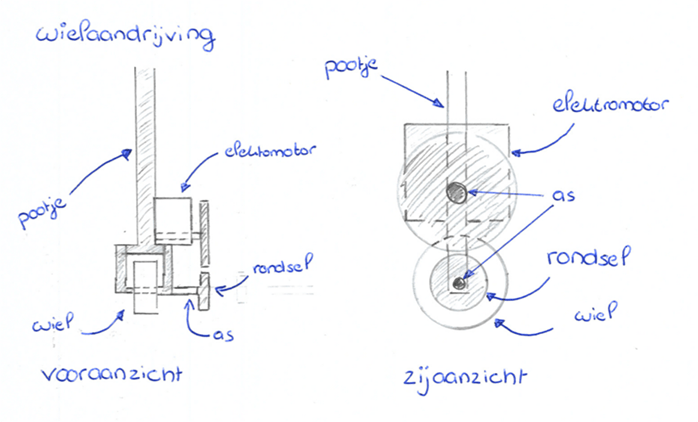 wielaandrijving
pootje
elektromotor
pootje
rondsel
wiel
as
vooraanzicht
pootje
elektromotor
as
rondsel
wiel
zijaanzicht